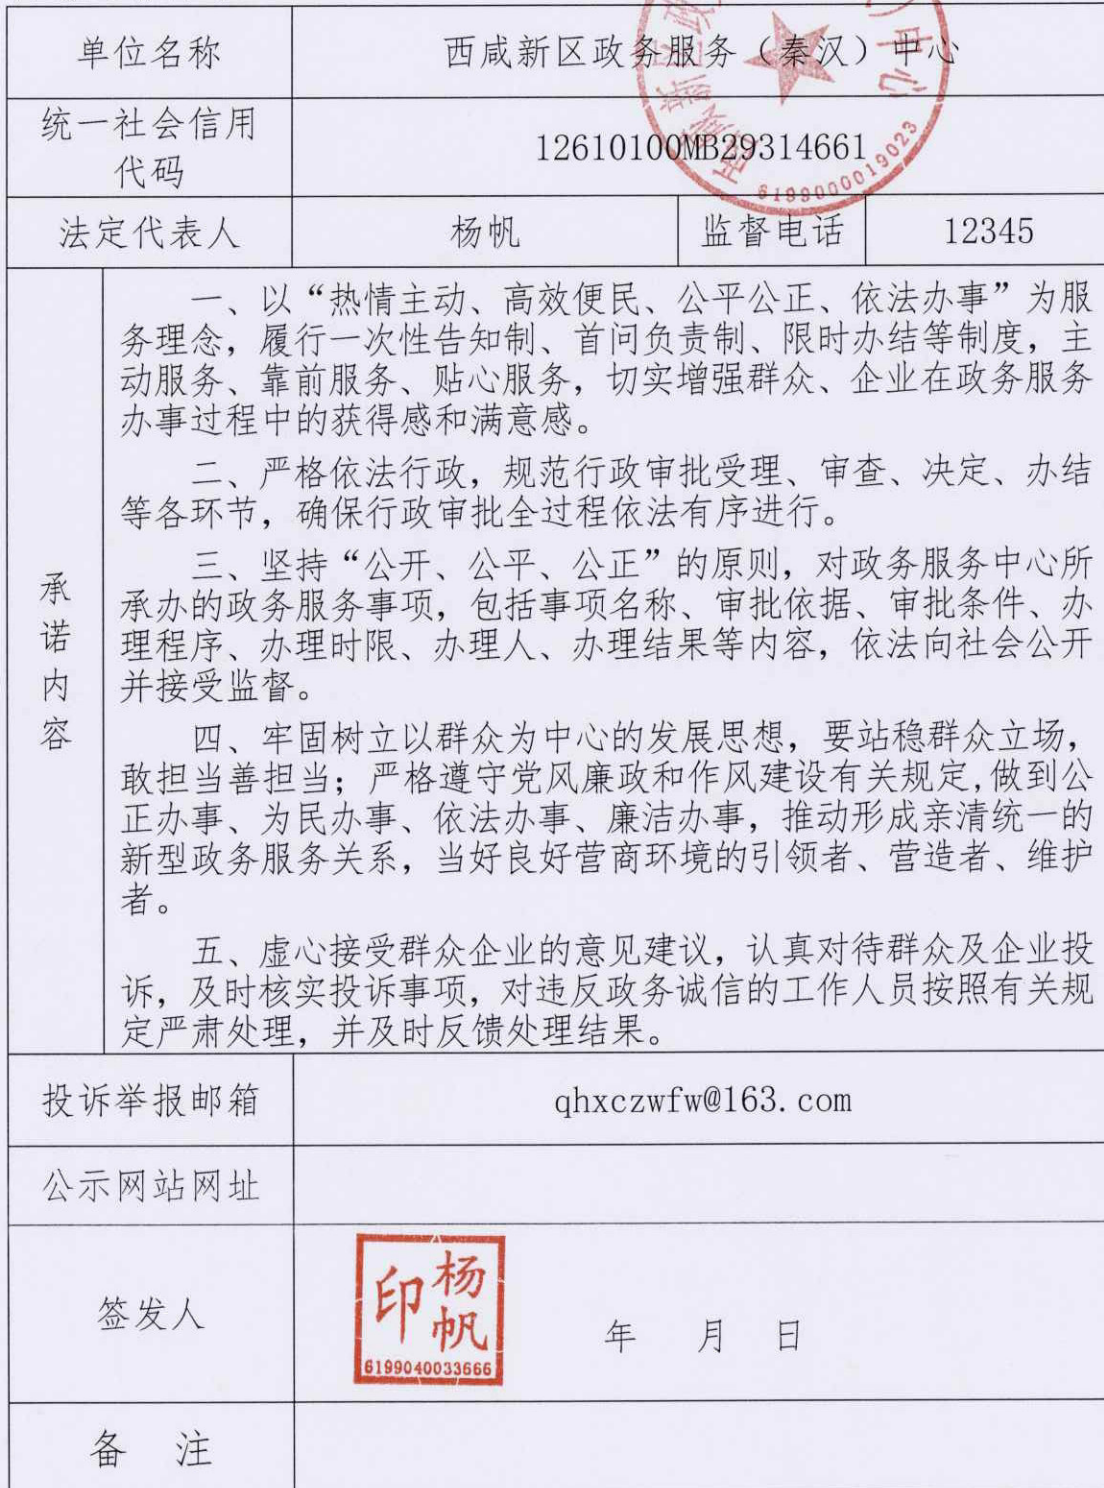 单位名称 西咸新区政务服务（秦汉）中心
统一社会信用
代码
12610100MB29314661
6199000019023
法定代表人 杨帆 监督电话 12345
承诺内容
一、以“热情主动、高效便民、公平公正、依法办事”为服
务理念，履行一次性告知制、首问负责制、限时办结等制度，主
动服务、靠前服务、贴心服务，切实增强群众、企业在政务服务
办事过程中的获得感和满意感。
二、严格依法行政，规范行政审批受理、审查、决定、办结
等各环节，确保行政审批全过程依法有序进行。
三、坚持“公开、公平、公正”的原则，对政务服务中心所
承办的政务服务事项，包括事项名称、审批依据、审批条件、办
理程序、办理时限、办理人、办理结果等内容，依法向社会公开
并接受监督。
四、牢固树立以群众为中心的发展思想，要站稳群众立场，
敢担当善担当；严格遵守党风廉政和作风建设有关规定,做到公
正办事、为民办事、依法办事、廉洁办事，推动形成亲清统一的
新型政务服务关系，当好良好营商环境的引领者、营造者、维护
者。
五、虚心接受群众企业的意见建议，认真对待群众及企业投
诉，及时核实投诉事项，对违反政务诚信的工作人员按照有关规
定严肃处理，并及时反馈处理结果。
投诉举报邮箱 qhxczwfw@163.com
公示网站网址
签发人
杨帆印
6199040033666
年 月 日
备 注